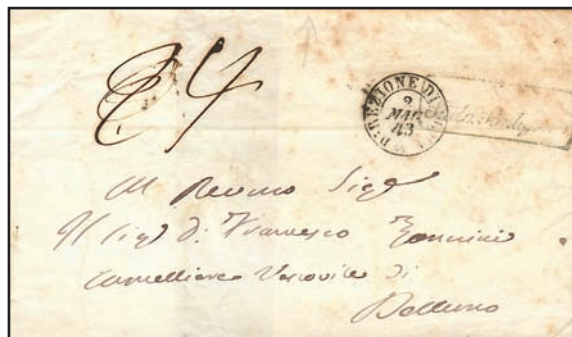 24
DIREZIONE DI
2
MAR
43
Al Revmo Sigr
Il Sigr Dr. Francesco Zannini
Cancelliere Vescovile di
Belluno